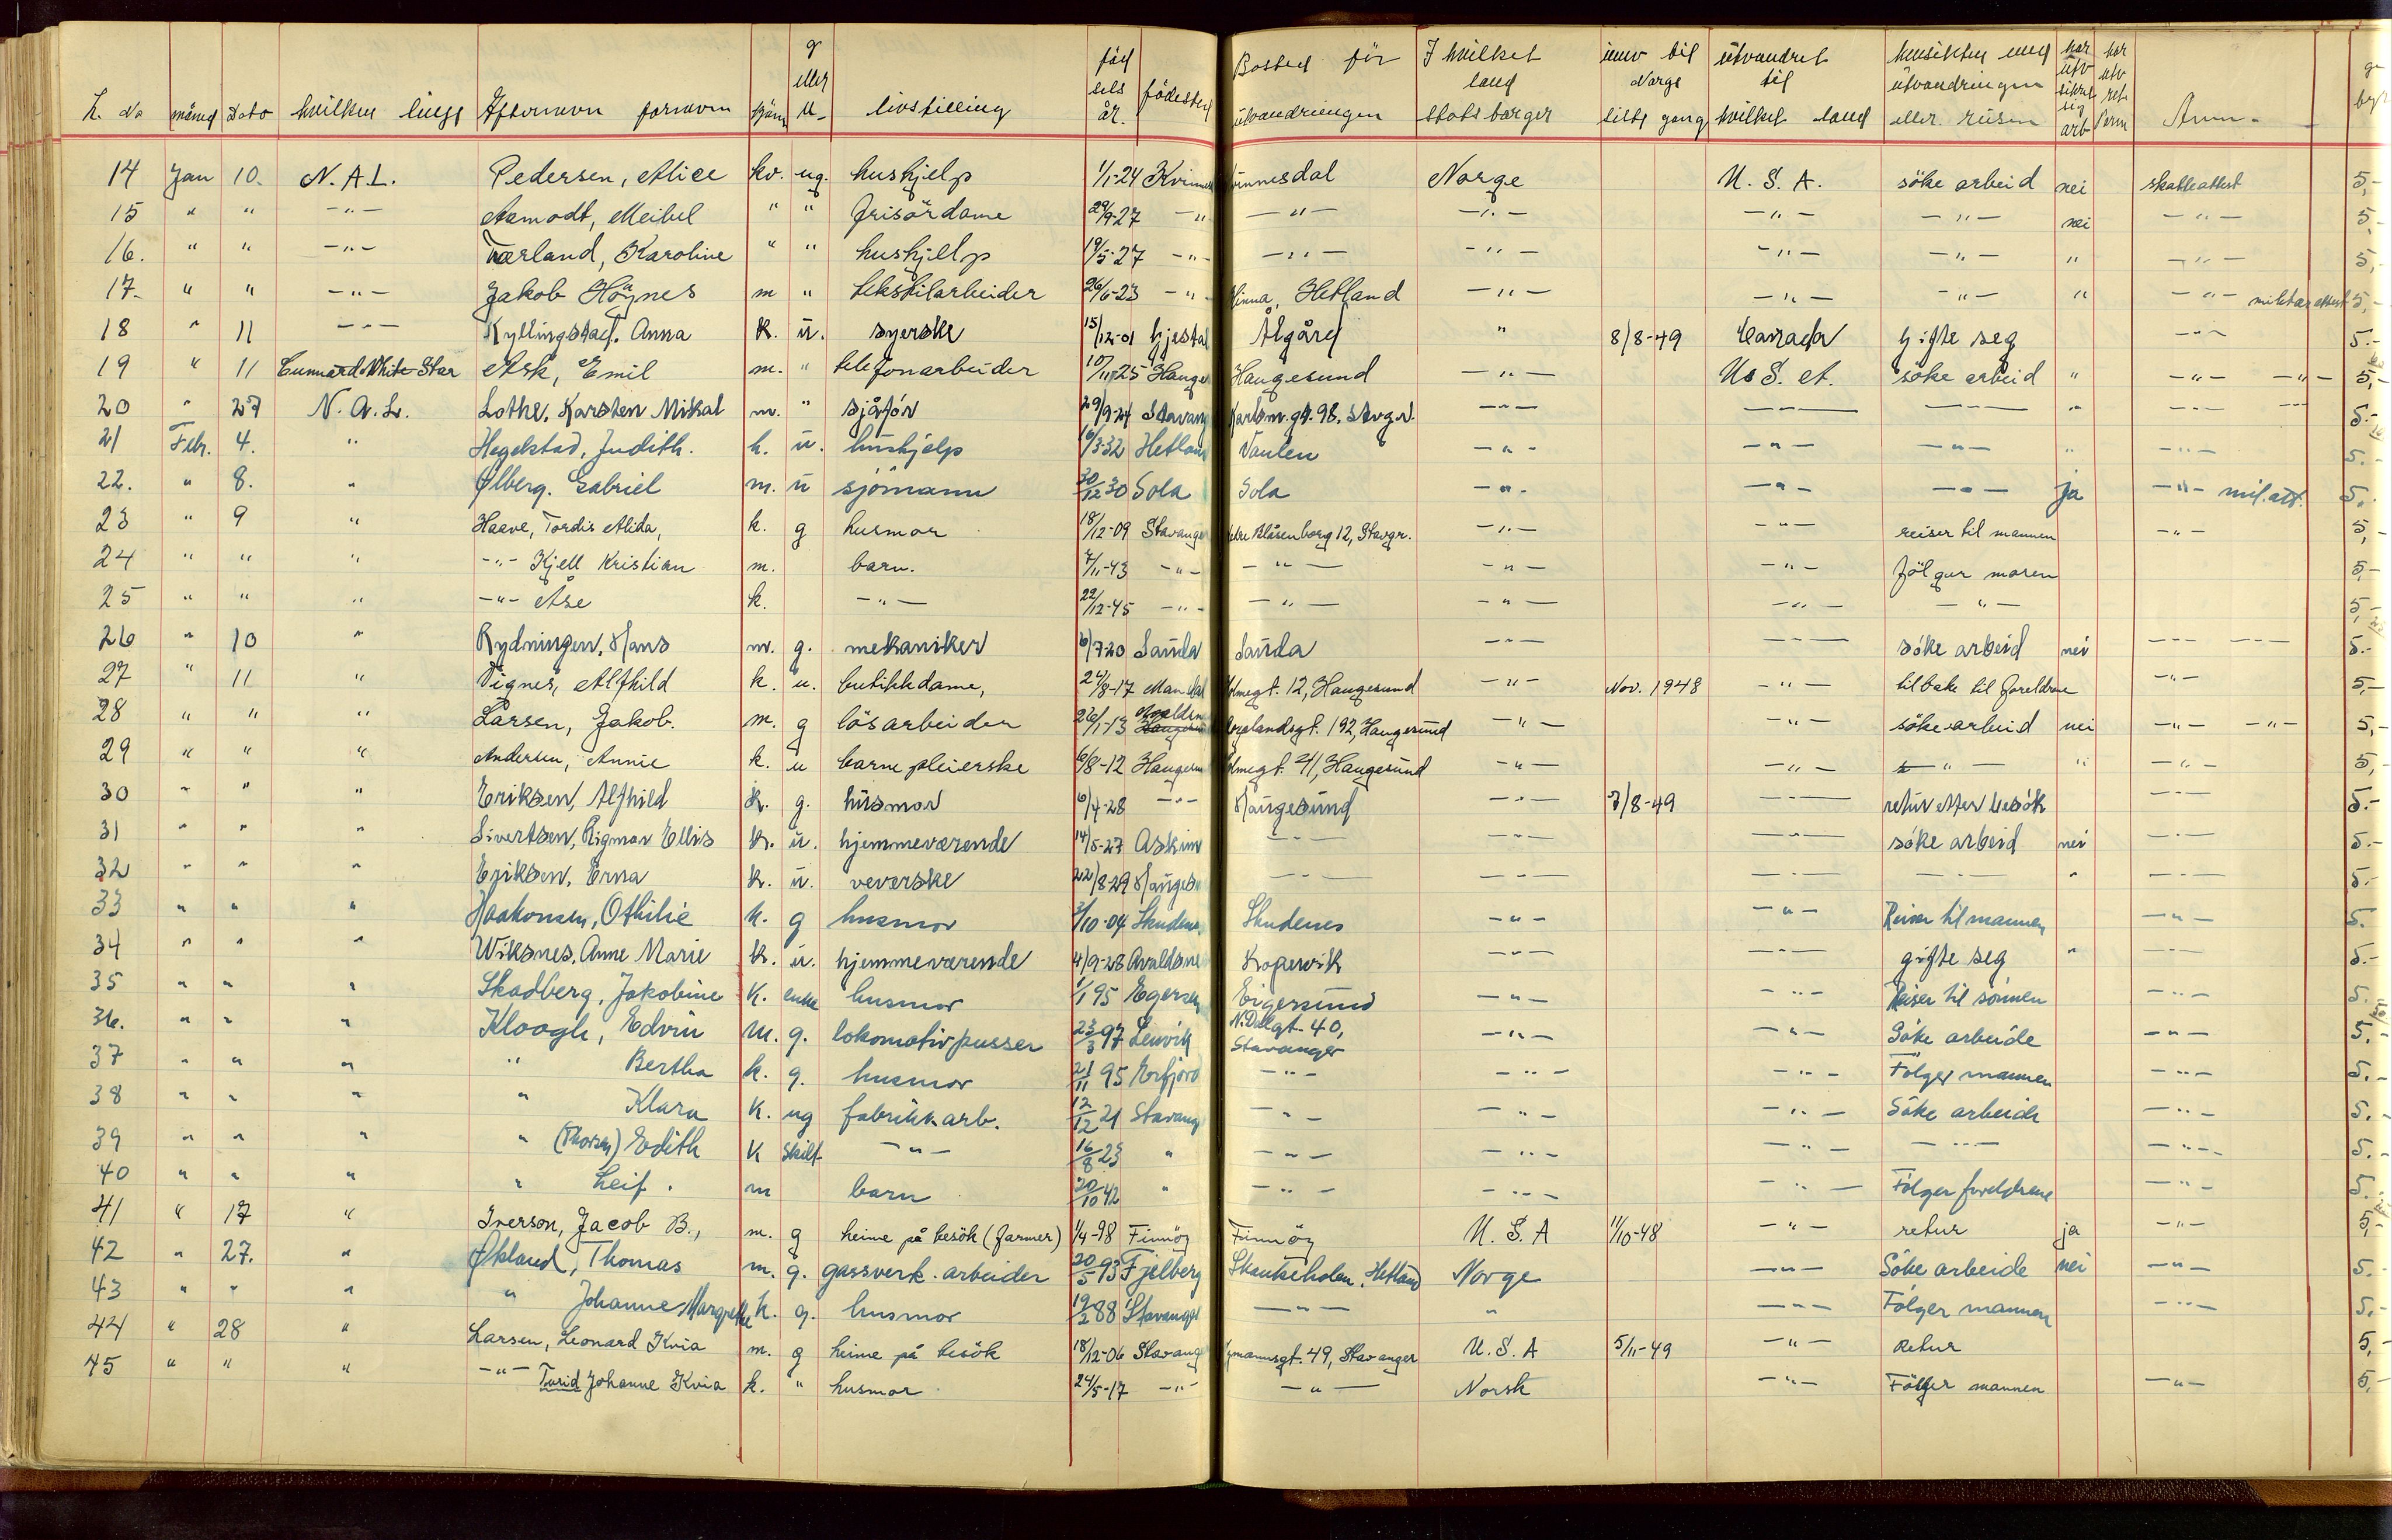 L. No måned Dato hvilken linje Efternavn fornavn kjønn g eller u- livstilling fød sels år. fødested Bosted før utvandringen I hvilket land statsborger innv til Norge siste gang utvandret til hvilket land hensikten med utvandringen eller reisen har utv sikret sig arb har utv ret Anm-
14 Jan 10. N.A.L. Pedersen, Alice kv. ug. hushjelp 1/1-24 Kvinnesdal Norge U.S.A. söke arbeid nei skatteattest 5,-
15 " " -"- Aamodt, Meibel " " frisördame 29/9-27 -"- -"- -"- -"- -"- nei -"- 5,-
16. " " -"- Tærland, Karoline " " hushjelp 19/5-27 -"- -"- -"- -"- -"- " -"- 5,-
17. " " -"- Jakob Höynes m " tekstilarbeider 26/6-23 -"- Hinna, Hetland -"- -"- -"- " -"- militærattest 5,-
18 " 11 -"- Kyllingstad. Anna k. u. syerske 15/12-01 Gjestal Ålgård " 8/8-49 Canada gifte seg -"- 5.-
19 " 11 Cunnard White Star Ask, Emil m. " telefonarbeider 10/11-25 Hauge Haugesund -"- U.S.A. söke arbeid " -"- -"- 5,-
20 " 27 N.A.L. Lothe, Karsten Mikal m. " sjåfør 29/9-24 Stavang Karlsm.gt. 98. Stvgr. -"- -"- -"- " -"- -"- 5.-
21 Febr. 4. " Hegelstad, Judith. k. u. hushjelp 16/3-32 Hetland Vaulen -"- -"- -"- " -"- 5.-
22. " 8. " Ølberg. Gabriel m. u sjömann 30/12 30 Sola Sola -"- -"- -"- ja -"- mil.att. 5.
23 " 9 " Haave, Tordis Alida, k. g husmor 18/12-09 Stavange Blåsenborg 12, Stavgr. -"- -"- reiser til mannen -"- 5,-
24 " " " -"- Kjell Kristian m. barn. 7/11-43 -"- -"- -"- -"- fölger moren 5,-
25 " " " -"- Åse k. -"- 22/12-45 -"- -"- -"- -"- -"- 5,-
26 " 10 " Rydningen, Hans m. g. mekaniker 6/7-20 Sauda Sauda -"- -"- söke arbeid nei -"- -"- 5.-
27 " 11 " Vignes, Alfhild k. u. butikkdame, 24/8-17 Mandal Holmegt. 12, Haugesund -"- Nov. 1948 -"- tilbake til foreldrene -"- 5,-
28 " " " Larsen, Jakob. m. g lösarbeider 26/1-13 Avaldsn 192, Haugesund -"- -"- söke arbeid nei -"- -"- 5,-
29 " " " Andersen, Annie k. u barnepleierske 6/8-12 Haugesu Holmegt. 41, Haugesund -"- -"- -"- " -"- 5,-
30 " " " Eriksen, Alfhild k. g. husmor 6/4-28 -"- Haugesund -"- 3/8-49 -"- retur etter besök -"- 5.-
31 " " " Sivertsen, Rigmor Ellis k. u. hjemmeværende 14/5-27 Askim -"- -"- -"- söke arbeid nei -"- 5.-
32 " " " Eriksen, Erna k. u. veverske 22/8-29 Hauges -"- -"- -"- -"- " -"- 5.-
33 " " " Haakonsen, Othilie k. g husmor 3/10-04 Skudenes Skudenes -"- -"- Reiser til mannen -"- 5.
34 " " " Wiksnes, Anne Marie k. u. hjemmeværende 4/9-28 Avaldsne Kopervik -"- -"- gifte seg " -"- 5.-
35 " " " Skadberg, Jakobine K. enke husmor 1/1 95 Egersun Eigersund -"- -"- Reiser til sönnen -"- 5.
36. " " " Kloogh, Edvin m. g. lokomotivpusser 23/3 97 Lenvik N.Dalgt. 40, Stavanger -"- -"- Söke arbeide -"- 5.-
37 " " " " Bertha k. g. husmor 21/11 95 Erfjord -"- -"- -"- Fölger mannen -"- 5.-
38 " " " " Klara K. ug fabrikk.arb. 12/12 21 Stavang -"- -"- -"- Söke arbeide -"- 5.-
39 " " " " (Thorsen) Edith K skilt -"- 16/8 23 " -"- -"- -"- -"- -"- 5.-
40 " " " " Leif. m barn 20/10 42 " -"- -"- -"- Fölger foreldrene -"- 5.
41 " 17 " Iverson, Jacob B., m. g heime på besök (farmer) 1/4-98 Finnöy Finnöy U.S.A 11/10-48 -"- retur ja -"- 5,-
42 " 27. " Økland, Thomas m. g. gassverk.arbeider 20/5 93 Fjelberg Skankeholen, Hetland Norge -"- Söke arbeide nei -"- 5.-
43 " " " " Johanne Margrethe k. g. husmor 19/2 88 Stavanger -"- " -"- Fölger mannen -"- 5.-
44 " 28 " Larsen, Leonard Kvia m. g heime på besök 18/12-06 Stavang 49, Stavanger U.S.A 5/11-49 -"- Retur 5,-
45 " " " -"- Turid Johanne Kvia k. " husmor 24/5-17 -"- -"- Norsk -"- Fölger mannen -"- 5,-